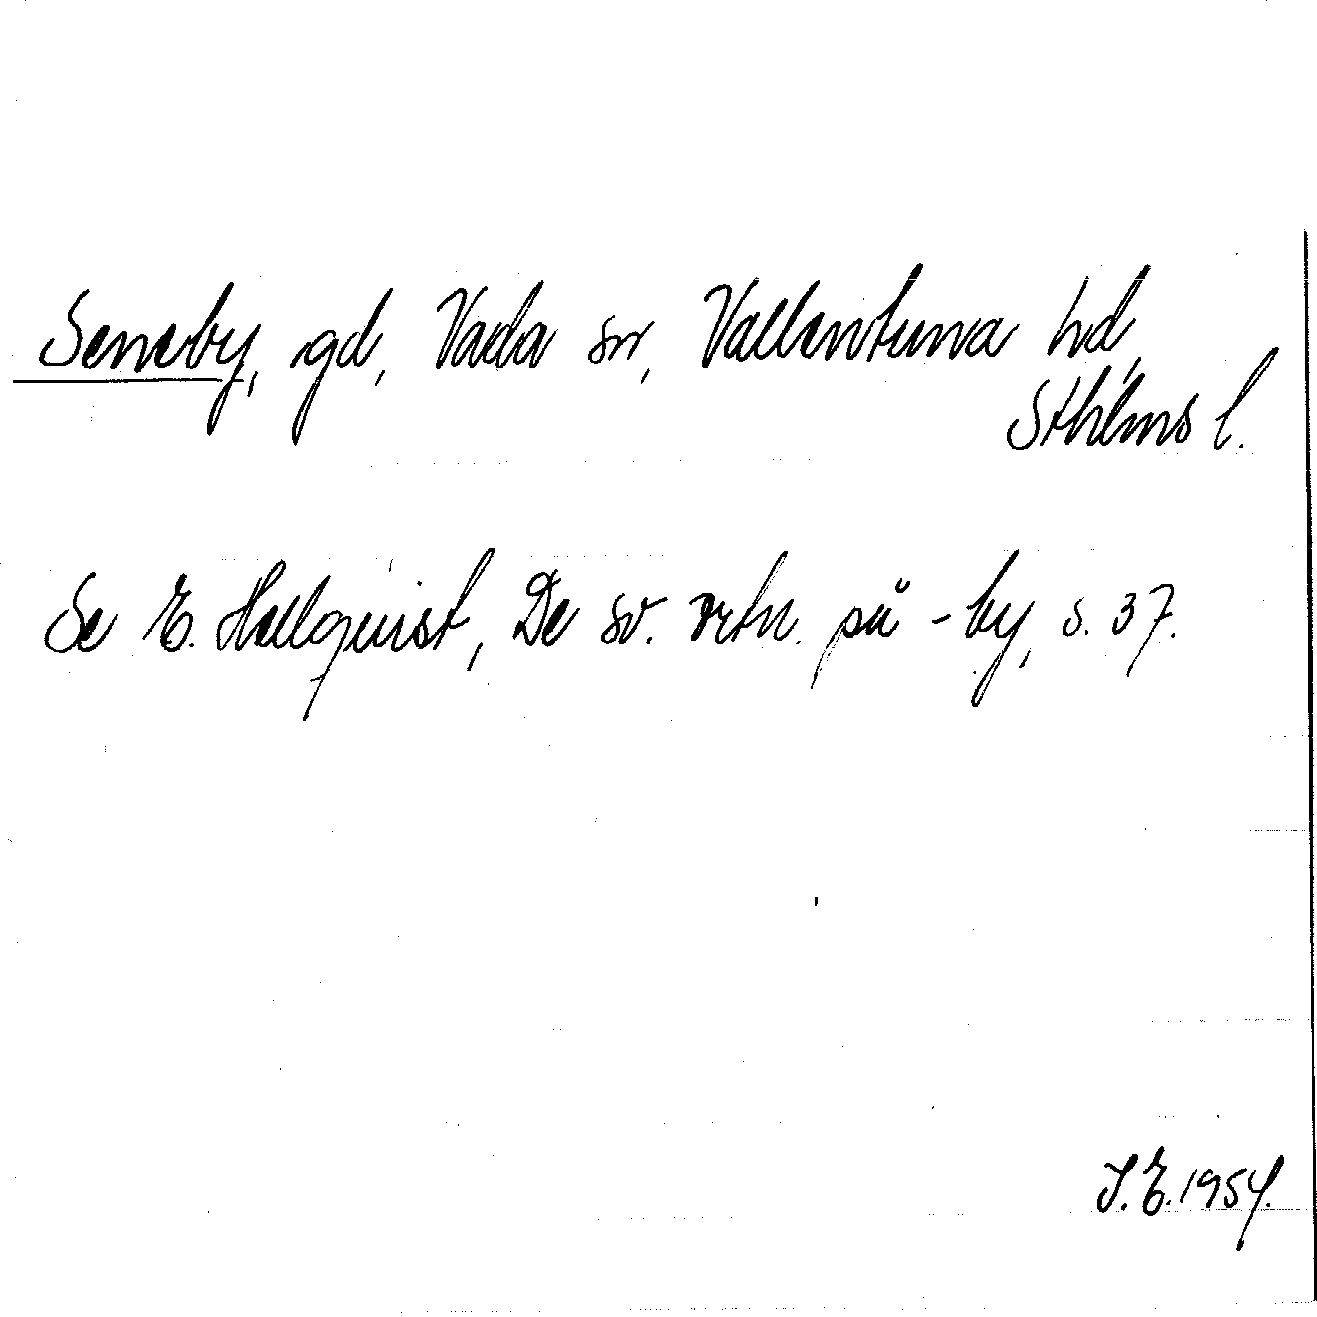 Seneby, gd, Vada sn, Vallentuna hd,
Sthlms l.
Se E. Hellquist, De sv. ortn. på -by, s. 37.
I.E. 1954.